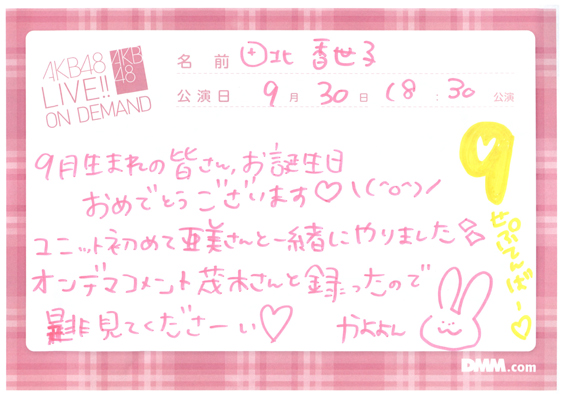 AKB48
LIVE!!
ON DEMAND
AKB
48
名前 田北 香世子
公演日 9月30日 18:30公演
9月生まれの皆さん、お誕生日
おめでとうございます♡\(^o^)/
ユニット初めて亜美さんと一緒にやりました
オンデマコメント茂木さんと録ったので
是非見てくださーい♡
かよよん
9
せぷてんばー♡
DMM.com